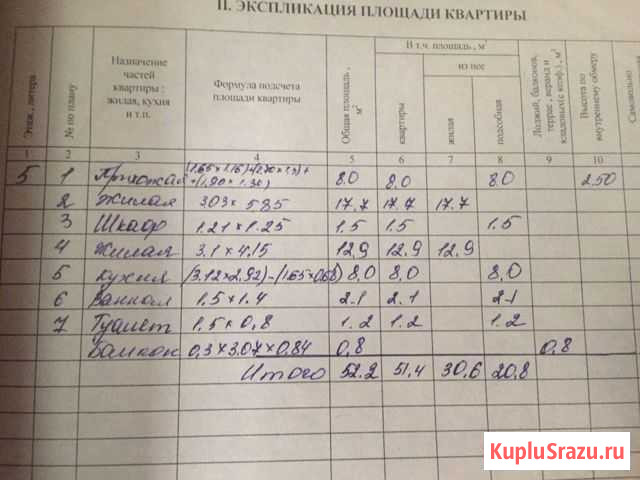 II. ЭКСПЛИКАЦИЯ ПЛОЩАДИ КВАРТИРЫ
Этаж, литера
№ по плану
Назначение
частей
квартиры :
жилая, кухня
и т.п.
Формула подсчета
площади квартиры
Общая площадь ,
м²
В т.ч. площадь , м²
квартиры
из нее
жилая
подсобная
Лоджий, балконов,
террас , веранд и
кладовых(с коэф.) , м²
Высота по
внутреннему обмеру
Самовольно
1 2 3 4 5 6 7 8 9 10
5 1 Прихожая 8.0 8.0 8.0 2.50
+(1.90 × 1.30)
2 Жилая 3.03 × 5.85 17.7 17.7 17.7
3 Шкаф 1.21 × 1.25 1.5 1.5 1.5
4 Жилая 3.1 × 4.15 12.9 12.9 12.9
5 Кухня (3.12×2.92)-(1.65×0.68) 8.0 8.0 8.0
6 Ванная 1.5 × 1.4 2.1 2.1 2.1
7 Туалет 1.5 × 0.8 1.2 1.2 1.2
Балкон 0,3 × 3.07 × 0.84 0.8 0.8
Итого 52.2 51.4 30.6 20.8
KupluSrazu.ru